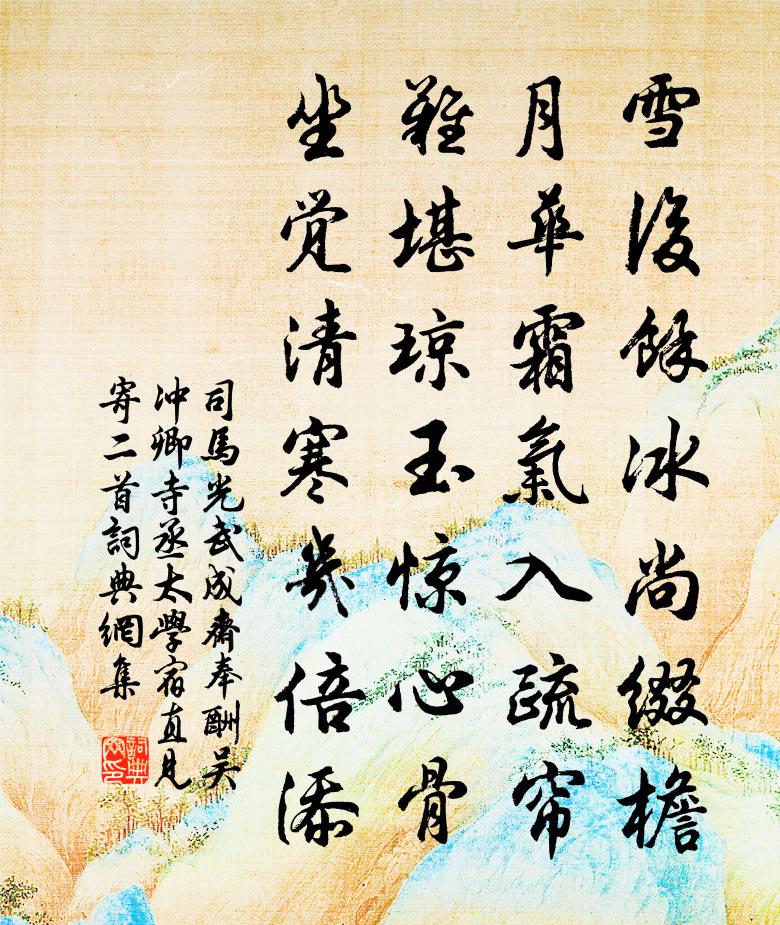 雪後餘冰尚綴檐
月華霜氣入疏帘
難堪琼玉惊心骨
坐觉清寒幾倍添
司馬光武成齋奉酬吴
冲卿寺丞太學宿直見
寄二首詞典網集
詞典网印